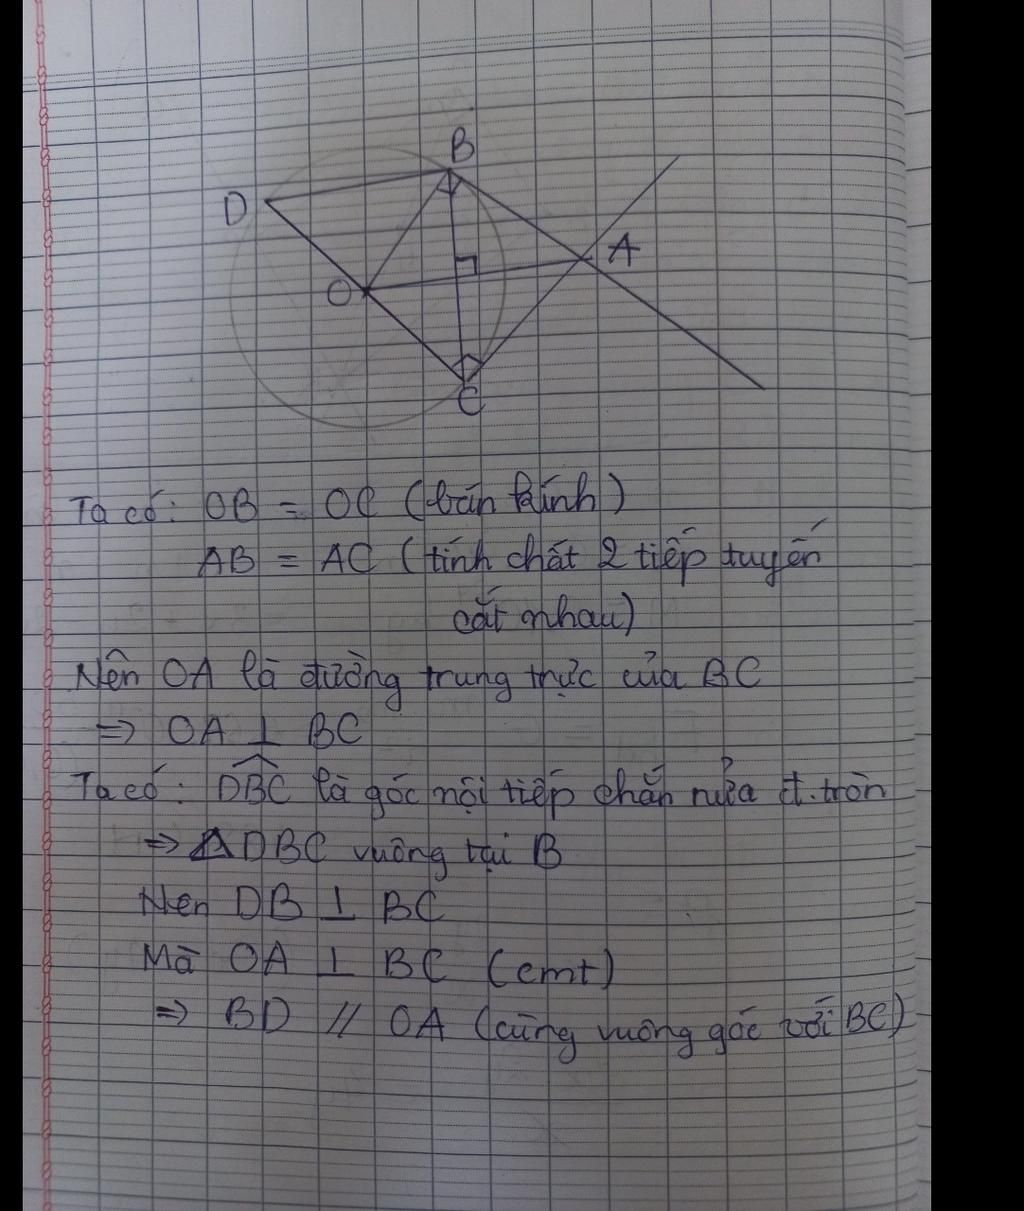 B
D
A
O
C
Ta có: OB = OC (bán kính)
AB = AC (tính chất 2 tiếp tuyến
cắt nhau)
Nên OA là đường trung trực của BC
=> OA ⊥ BC
Ta có: \widehat{DBC} là góc nội tiếp chắn nửa đ.tròn
=> ΔDBC vuông tại B
Nên DB ⊥ BC
Mà OA ⊥ BC (cmt)
=> BD // OA (cùng vuông góc với BC)